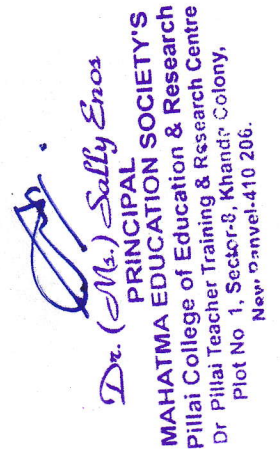 Dr. (Ms.) Sally Enos
PRINCIPAL
MAHATMA EDUCATION SOCIETY'S
Pillai College of Education & Research
Dr Pillai Teacher Training & Research Centre
Plot No 1, Sector-8, Khanda Colony,
New Panvel-410 206.